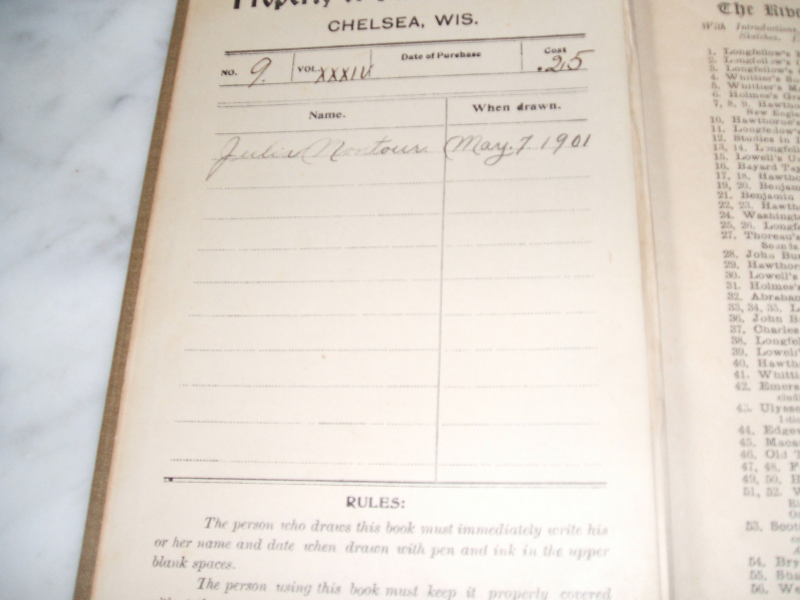 Property
CHELSEA, WIS.
NO. 9. VOL. XXXIV Date of Purchase Cost .25
Name. When drawn.
Julia Montour May. 7 1901
RULES:
The person who draws this book must immediately write his
or her name and date when drawn with pen and ink in the upper
blank spaces.
The person using this book must keep it properly covered
The
With Introductions,
Sketches,
1. Longfellow's
2. Longfellow's
3. Longfellow's
4. Whittier's
5. Whittier's
6. Holmes's
7, 8, 9. Hawtho
New Engla
10. Hawthorne's
11. Longfellow's
12. Studies in
13, 14. Longfell
15. Lowell's
16. Bayard
17, 18. Hawtho
19, 20. Benjam
21. Benjamin
22, 23. Hawtho
24. Washingt
25, 26. Longf
27. Thoreau's
28. John Bu
29. Hawthor
30. Lowell's
31. Holmes's
32. Abraha
33, 34, 35. L
36. John B
37. Charles
38. Longfel
39. Lowell'
40. Hawth
41. Whitti
42. Emers
43. Ulysse
44. Edgew
45. Maca
46. Old
47, 48. F
49, 50. H
51, 52. W
53. Scott
54. Bry
55. Sha
56. We